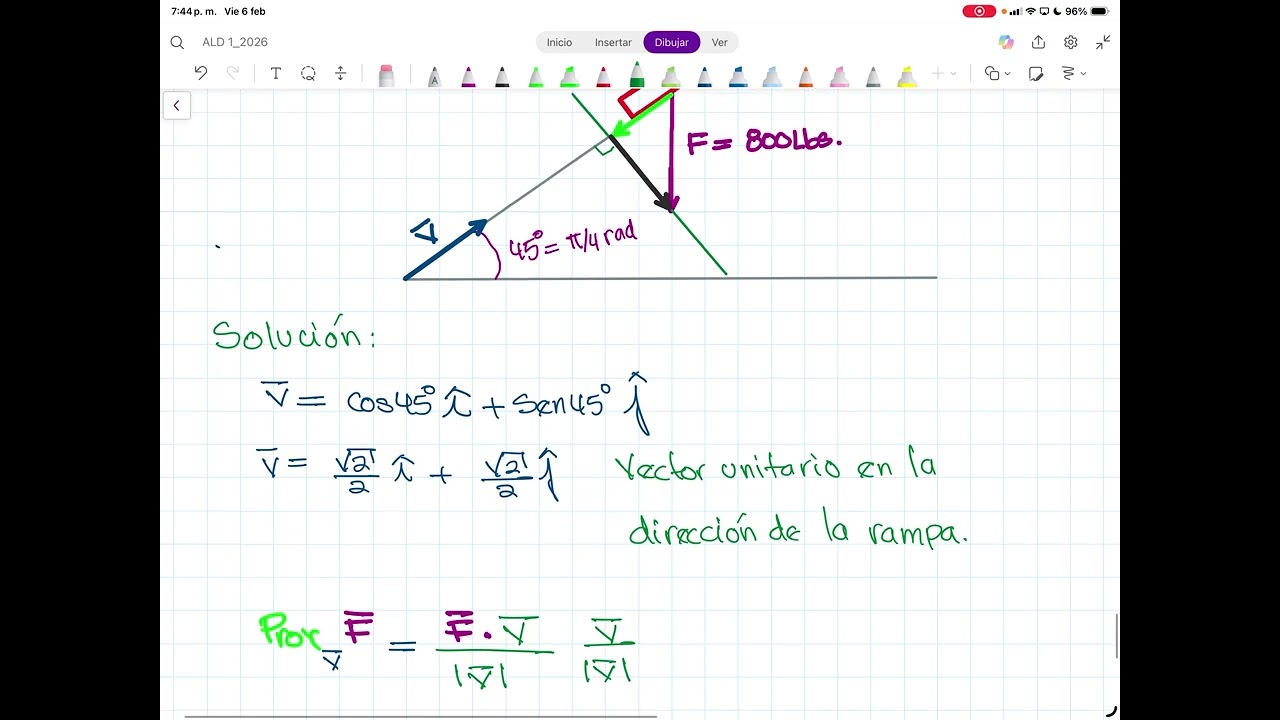 7:44 p. m. Vie 6 feb
96%
ALD 1_2026
Inicio Insertar Dibujar Ver
F = 800Lbs.
V
45° = π/4 rad
Solución:
V̅ = cos45° î + Sen45° ĵ
V̅ = √2/2 î + √2/2 ĵ Vector unitario en la
dirección de la rampa.
Proy_V̅ F̅ = F̅ · V̅ / |V̅| V̅ / |V̅|